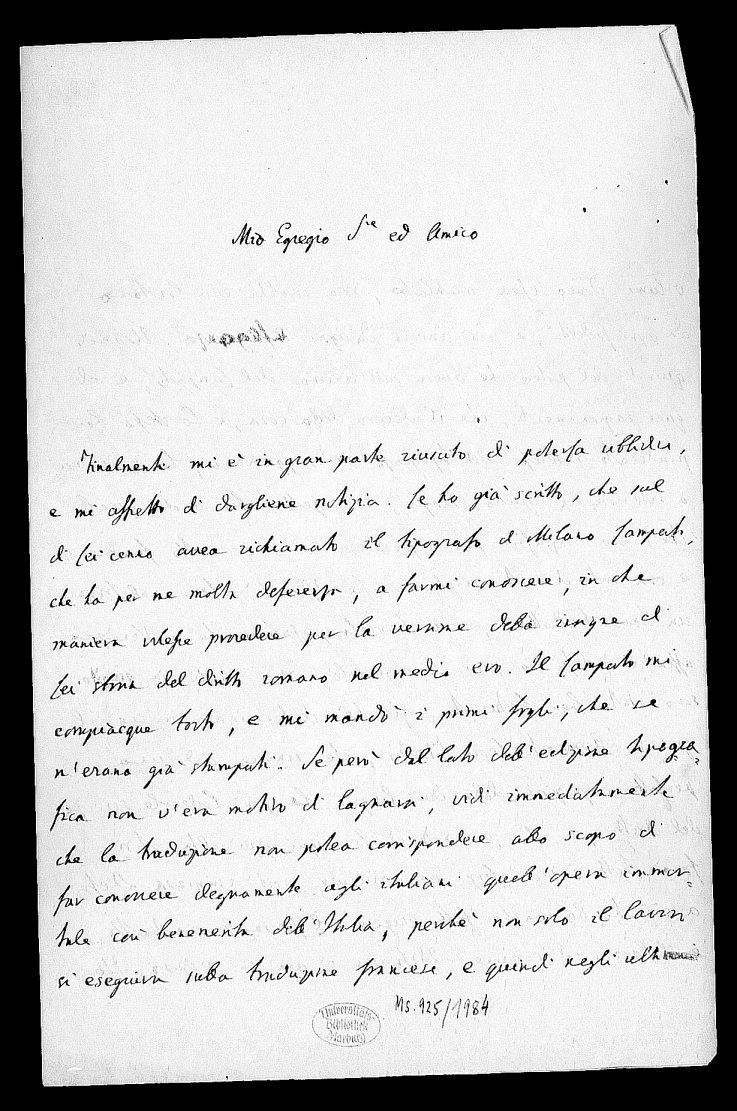 Mio Egregio S.re ed Amico
Finalmente mi è in gran parte riuscito di poterla ubbidire,
e mi affretto di dargliene notizia. Le ho già scritto, che sul
di Lei cenno avea richiamato il tipografo di Milano Lampato,
che ha per me molta deferenza, a farmi conoscere, in che
maniera volesse procedere per la versione della insigne di
Lei storia del diritto romano nel medio evo. Il Lampato mi
compiacque tosto, e mi mandò i primi fogli, che se
n'erano già stampati. Se però dal lato dell'edizione tipogra-
fica non v'era motivo di lagnarsi, vidi immediatamente
che la traduzione non potea corrispondere allo scopo di
far conoscere degnamente agli italiani quell'opera immor-
tale così benemerita dell'Italia, perchè non solo il lavoro
si eseguiva sulla traduzione francese, e quindi negli
Ms. 925/1984
Universitäts-
Bibliothek
Marburg